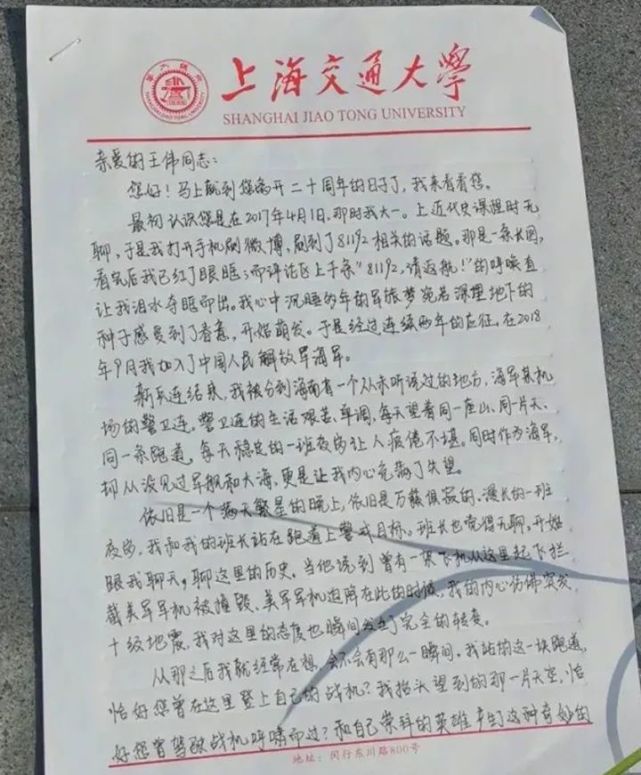 上海交通大學
SHANGHAI JIAO TONG UNIVERSITY
亲爱的王伟同志：
您好！马上就到您离开二十周年的日子了，我来看看您。
最初认识您是在2017年4月1日，那时我大一。上近代史课程时无
聊，于是我打开手机刷微博，刷到了81192相关的话题。那是一条长图，
看完后我已红了眼眶；而评论区上千条“81192，请返航！”的呼唤直
让我泪水夺眶而出。我心中沉睡多年的军旅梦宛若深埋地下的
种子感受到了春意，开始萌发。于是经过连续两年的应征，在2018
年9月我加入了中国人民解放军海军。
新兵连结束，我被分到海南省一个从未听说过的地方，海军某机
场的警卫连。警卫连的生活艰苦、单调，每天望着同一座山、同一片天、
同一条跑道，每天稳定的一班夜岗让人疲倦不堪。同时作为海军，
却从没见过军舰和大海，更是让我内心充满了失望。
依旧是一个满天繁星的晚上，依旧是万籁俱寂的、漫长的一班
夜岗，我和我的班长站在跑道上警戒目标。班长也觉得无聊，开始
跟我聊天，聊这里的历史。当他说到曾有一架飞机从这里起飞拦
截美军军机被撞毁、美军军机迫降在此的时候，我的内心仿佛突发
十级地震，我对这里的态度也瞬间发生了完全的转变。
从那之后我就经常在想，会不会有那么一瞬间，我站的这一块跑道，
恰好您曾在这里登上自己的战机？我抬头望到的那一片天空，恰
好您曾驾驶战机呼啸而过？和自己崇拜的英雄产生了这种奇妙的
地址：闵行东川路800号